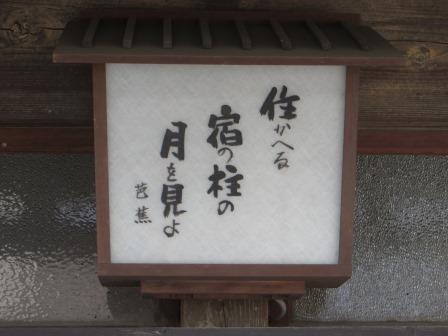 住かへる
宿の柱の
月を見よ
芭蕉